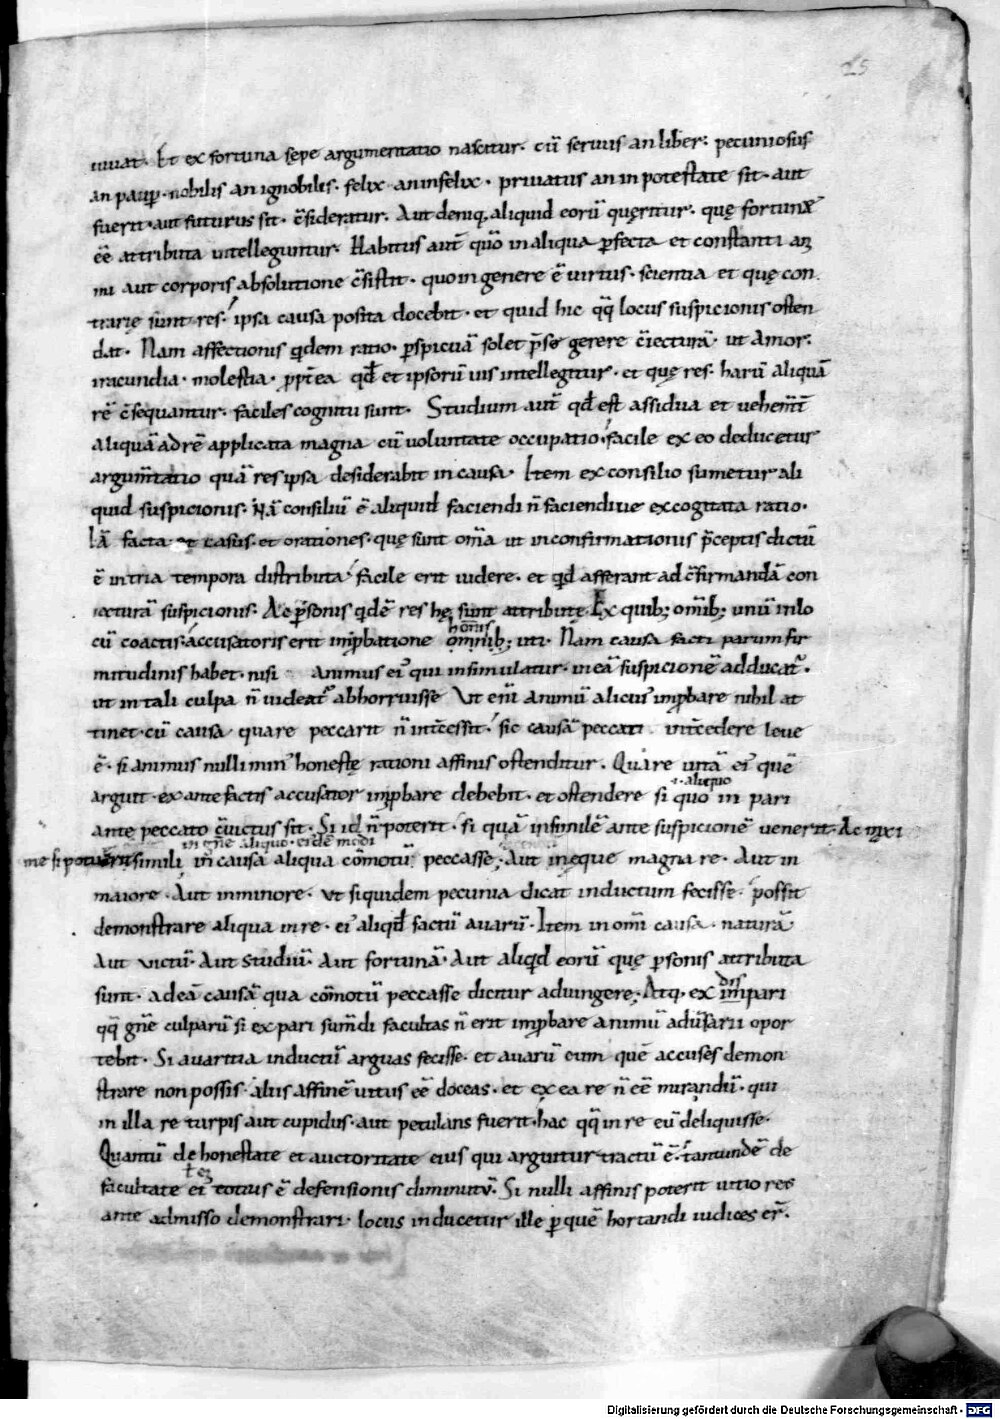 25
uiuat. Et ex fortuna sępe argumentatio nascitur. cū seruus an liber. pecuniosus
an paup. nobilis an ignobilis. felix an infelix. priuatus an in potestate sit. aut
fuerit. aut futurus sit. c̄sideratur. Aut deniq; aliquid eorū quęritur. quę fortunę
eē attributa intelleguntur. Habitus aut̄ quō in aliqua pfecta et constanti ani
mi aut corporis absolutione c̄sistit. quo in genere ē uirtus. scientia et quę con
trarię sunt res. ipsa causa posita docebit. et quid hic qq̄ locus suspicionis osten
dat. Nam affectionis qdem ratio. pspicuā solet p̄ se gerere c̄iecturā. ut amor.
iracundia. molestia. ppt̄ea qd̄ et ipsorū uis intellegitur. et quę res harū aliquā
rē c̄sequantur. faciles cognitu sunt. Studium aut̄ qd̄ est assidua et uehem̄t
aliquā ad rē applicata magna cū uoluntate occupatio. facile ex eo deducetur
argum̄tatio quā res ipsa desiderabit in causa. Item ex consilio sumetur ali
quid suspicionis. Nā consiliū ē aliquid faciendi n̄ faciendiue excogitata ratio.
Iā facta et casus. et orationes. quę sunt om̄a ut in confirmationis p̄ceptis dictū
ē in tria tempora distributa. facile erit uidere. et qd afferant ad c̄firmandā con
iecturā suspicionis. Ac psonis qdē res hę sunt attributę. Ex quib; om̄ib; unū in lo
cū coactis. accusatoris erit improbatione omnib; uti. Nam causa facti parum fir
hōnis
mitudinis habet. nisi animus ei' qui insimulatur. in eā suspicionē adducat̄.
ut in tali culpa n̄ uideat̄ abhorruisse Ut enī animū alicui' impbare nihil at
tinet. cū causa quare peccarit n̄ int̄cessit. sic causā peccati int̄cedere leue
ē. si animus nulli min' honestę rationi affinis ostenditur. Quare uitā ei' quē
arguit. ex ante factis accusator impbare debebit. et ostendere si quo in pari
.i. aliquo
ante peccato c̄uictus sit. Si id n̄ poterit. si quā in similē ante suspicionē uenerit. Ac maxi
in gn̄e aliquo. eidē modi
me si poterit simili in causa aliqua cōmotū peccasse; Aut in ęque magna re. Aut in
maiore. Aut in minore. ut si quidem pecunia dicat inductum fecisse. possit
demonstrare aliqua in re. ei' aliqd̄ factū auarū. Item in om̄i causa. naturā
Aut uictū. Aut studiū. Aut fortunā. Aut aliqd eorū quę psonis attributa
sunt. ad eā causā qua cōmotū peccasse dicitur adiungere; Atq; ex impari
dis
qq̄ gn̄e culparū si ex pari sum̄di facultas n̄ erit impbare animū adūsarii opor
tebit. Si auaritia inductū arguas fecisse. et auarū eum quē accuses demon
strare non possis. aliis affinē uitiis eē doceas. et ex ea re n̄ eē mirandū. qui
in illa re turpis aut cupidus. aut petulans fuerit. hac qq̄ in re eū deliquisse.
Quantū de honestate et auctoritate eius qui arguitur tractū ē. tantundē de
facultate ei' totius ē defensionis diminutū. Si nulli affinis poterit uitio reus
ante admisso demonstrari. locus inducetur ille p quē hortandi iudices er̄.
Digitalisierung gefördert durch die Deutsche Forschungsgemeinschaft - DFG